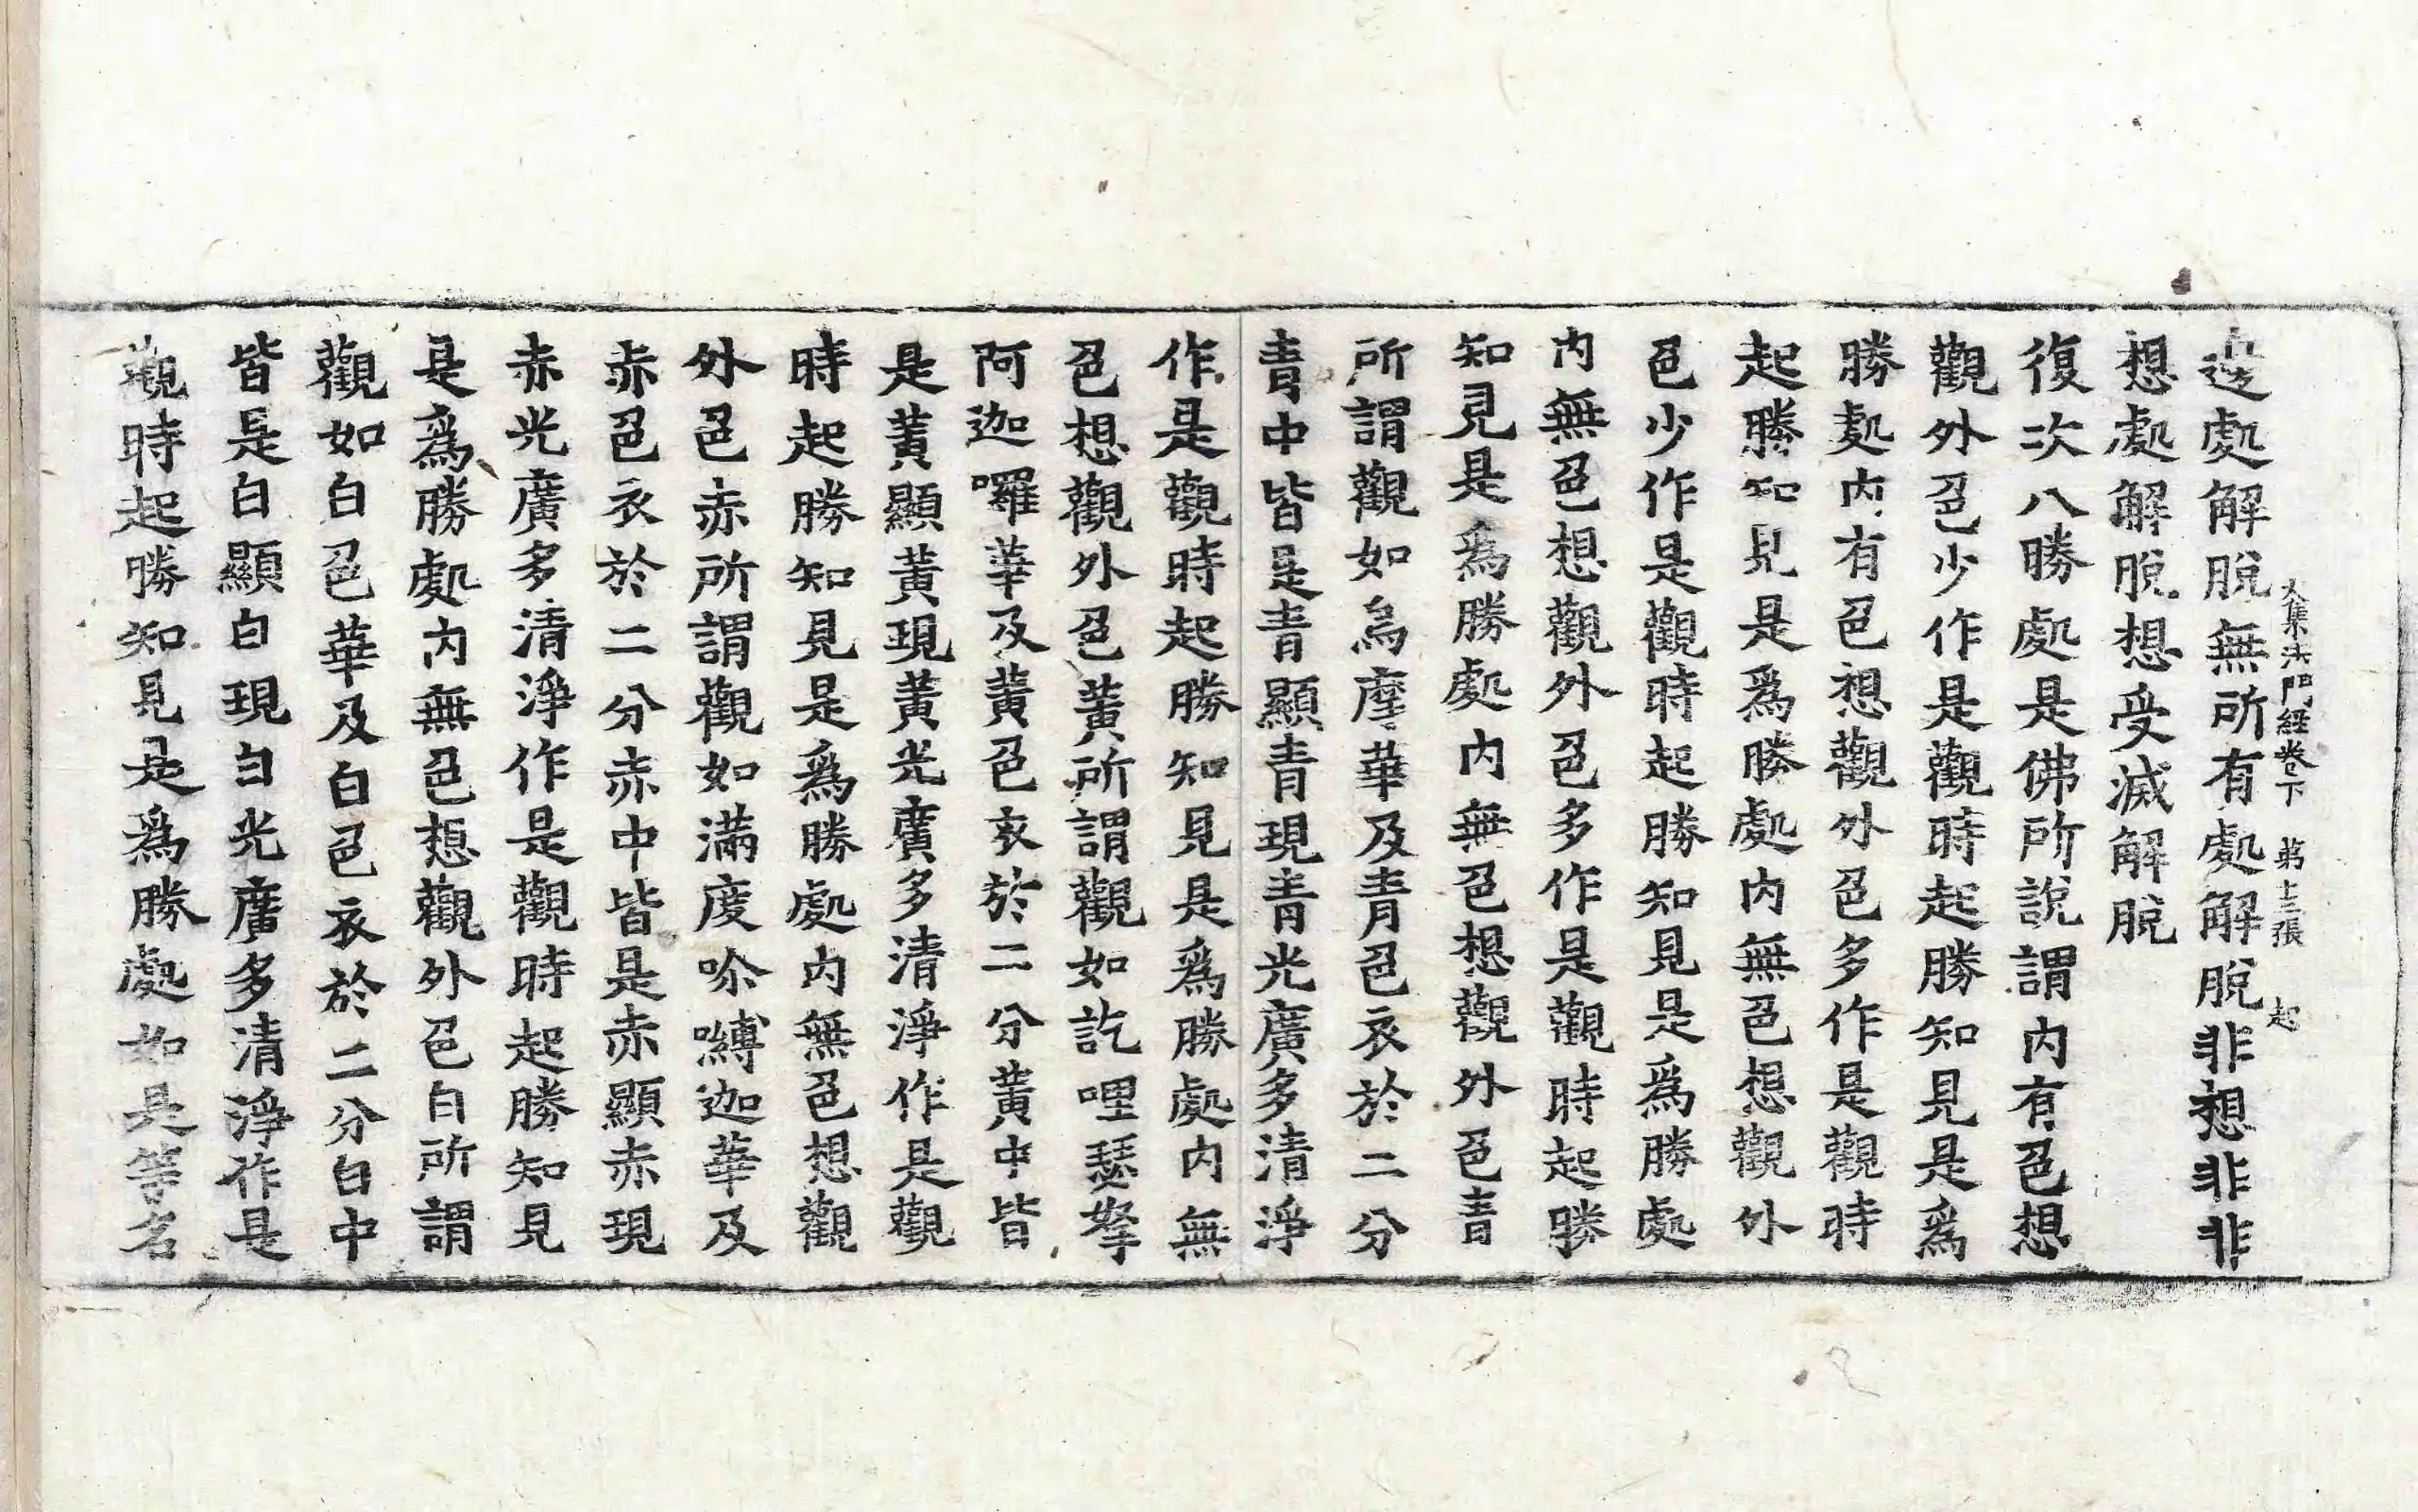 大集法門經卷下　第十三張　起
邊處解脫無所有處解脫非想非非
想處解脫想受滅解脫
復次八勝處是佛所說謂內有色想
觀外色少作是觀時起勝知見是為
勝處內有色想觀外色多作是觀時
起勝知見是為勝處內無色想觀外
色少作是觀時起勝知見是為勝處
內無色想觀外色多作是觀時起勝
知見是為勝處內無色想觀外色青
所謂觀如烏摩華及青色衣於二分
青中皆是青顯青現青光廣多清淨
作是觀時起勝知見是為勝處內無
色想觀外色黃所謂觀如訖哩瑟拏
阿迦囉華及黃色衣於二分黃中皆
是黃顯黃現黃光廣多清淨作是觀
時起勝知見是為勝處內無色想觀
外色赤所謂觀如滿度喻嚩迦華及
赤色衣於二分赤中皆是赤顯赤現
赤光廣多清淨作是觀時起勝知見
是為勝處內無色想觀外色白所謂
觀如白色華及白色衣於二分白中
皆是白顯白現白光廣多清淨作是
觀時起勝知見是為勝處如是等名